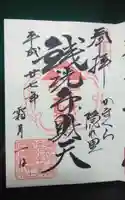 奉拝
かまくら
隠れ里
銭洗弁財天
平成廿七年